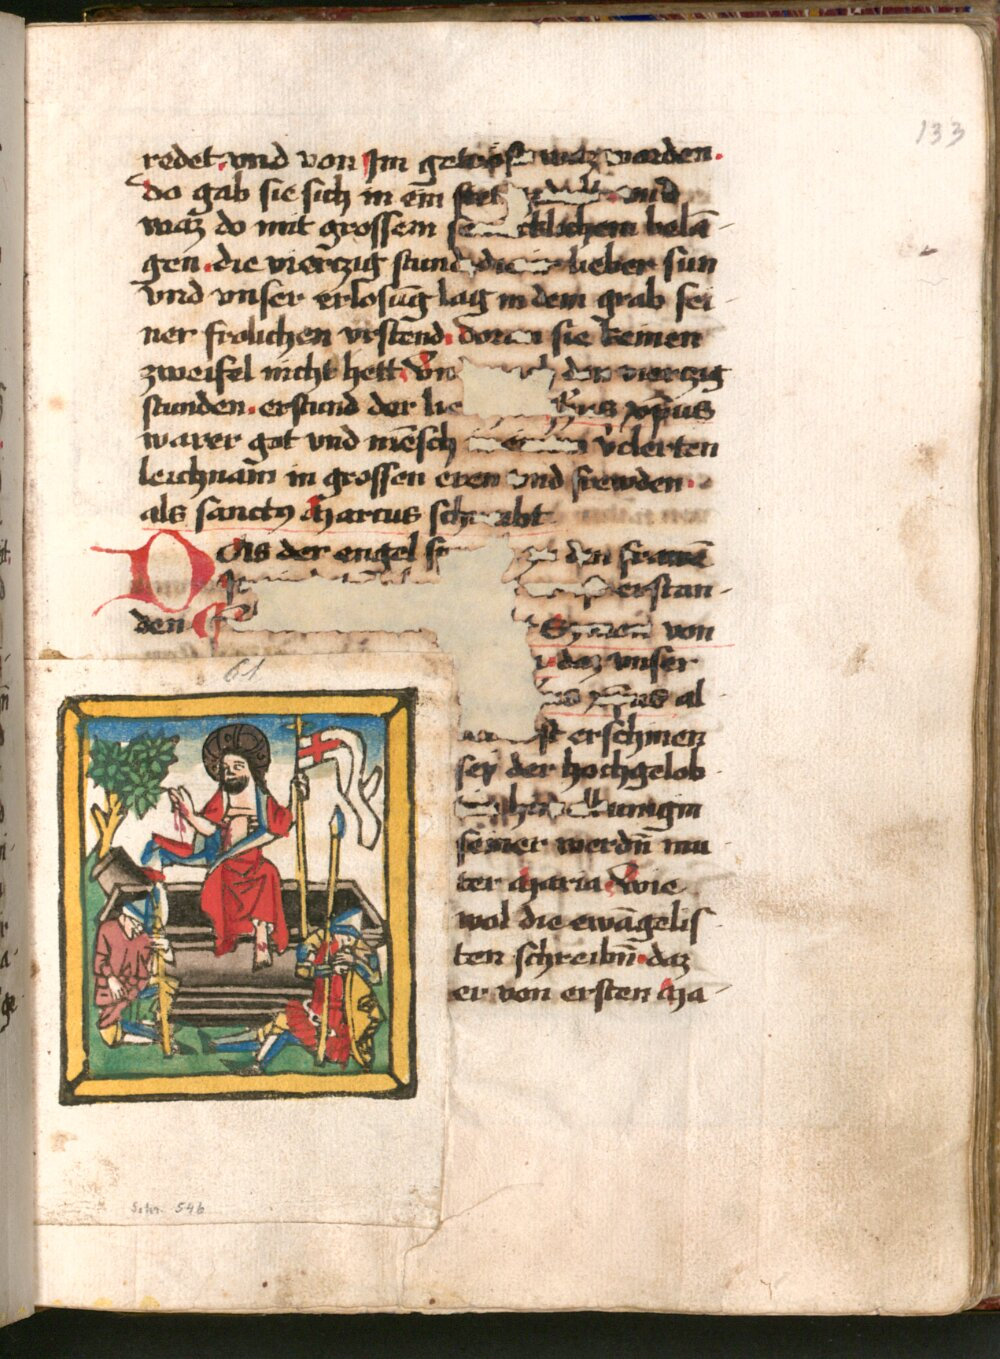 133
redet vnd von Jm getröst waz worden.
do gab sie sich in em̄ vnd
waz do mit grossem belā-
gen. die viertzig stund die lieber sun
vnd vnser erlosūg lag in dem grab sei-
ner frolichen vrstend. doran sie keinen
zweifel nicht hett. Vn den viertzig
stunden. erstund der lie xp̄us
warer got vnd mēsch vclerten
leichnam̄ in grossen eren vnd frewden.
als sanctus Marcus schreibt
Dois der engel den frawē
erstan-
den Symen von
daz vnser
xp̄us al
erschinen
sey der hochgelob
kunigin
seiner werdn̄ mu
ter Maria. Wie
wol die ewāgelis
ten schreibn̄. daz
er von ersten Ma-
61
Schr. 546